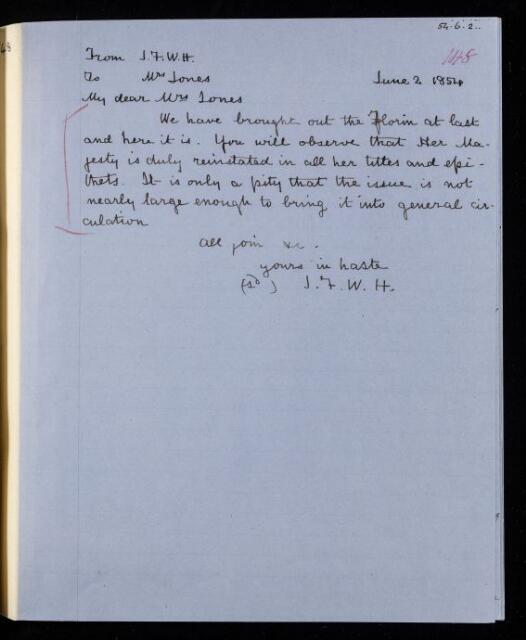 54.6.2..
148
From J.F.W.H.
To Mrs Jones
June 2 1854
My dear Mrs Jones
We have brought out the Florin at last
and here it is. You will observe that Her Ma-
jesty is duly reinstated in all her titles and epi-
thets. It is only a pity that the issue is not
nearly large enough to bring it into general cir-
culation
all join &c.
yours in haste
(sd) J.F.W.H.